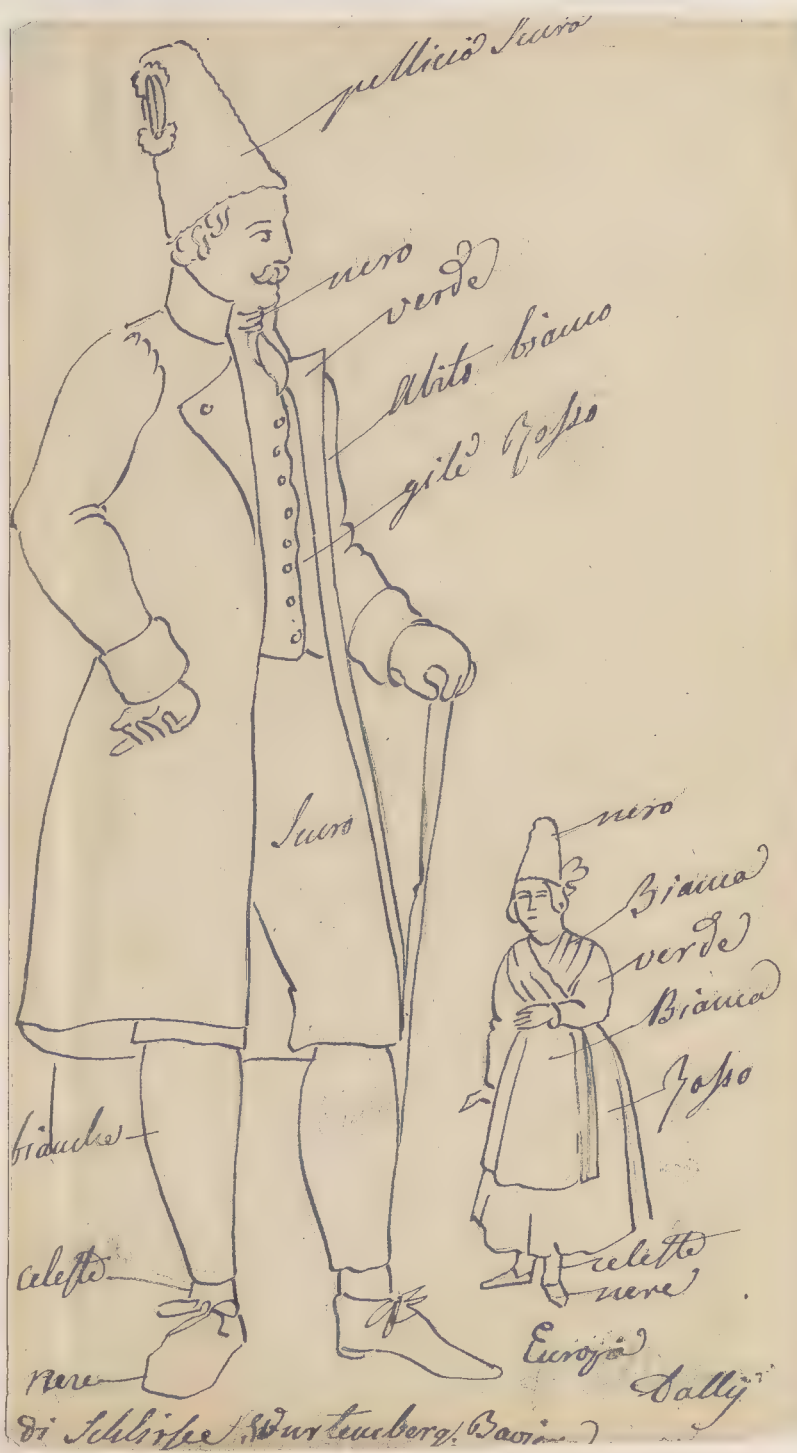 pelliccia Scura
nero
verde
Abito bianco
gilè Rosso
Scuro
nero
Bianca
verde
Bianca
Rosso
bianche
celeste
celeste
nere
nere
Europa
di Schlirsee Wurtemberg